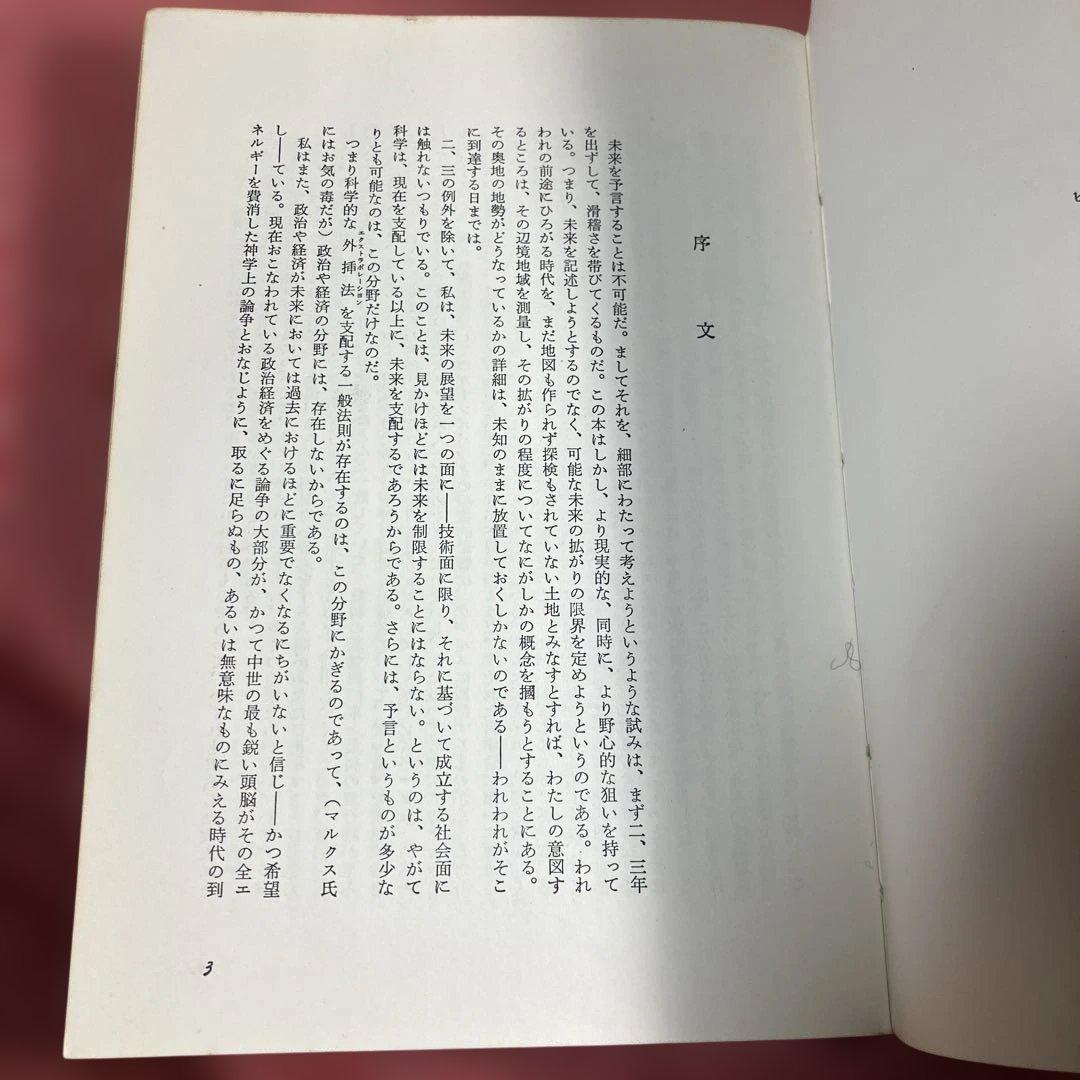 序文
未来を予言することは不可能だ。ましてそれを、細部にわたって考えようというような試みは、まず二、三年
を出ずして、滑稽さを帯びてくるものだ。この本はしかし、より現実的な、同時に、より野心的な狙いを持って
いる。つまり、未来を記述しようとするのでなく、可能な未来の拡がりの限界を定めようというのである。われ
われの前途にひろがる時代を、まだ地図も作られず探検もされていない土地とみなすとすれば、わたしの意図す
るところは、その辺境地域を測量し、その拡がりの程度についてなにがしかの概念を摑もうとすることにある。
その奥地の地勢がどうなっているかの詳細は、未知のままに放置しておくしかないのである——われわれがそこ
に到達する日までは。
二、三の例外を除いて、私は、未来の展望を一つの面に——技術面に限り、それに基づいて成立する社会面に
は触れないつもりでいる。このことは、見かけほどには未来を制限することにはならない。というのは、やがて
科学は、現在を支配している以上に、未来を支配するであろうからである。さらには、予言というものが多少な
りとも可能なのは、この分野だけなのだ。
つまり科学的な外挿法エクストラポレーションを支配する一般法則が存在するのは、この分野にかぎるのであって、（マルクス氏
にはお気の毒だが）政治や経済の分野には、存在しないからである。
私はまた、政治や経済が未来においては過去におけるほどに重要でなくなるにちがいないと信じ——かつ希望
し——ている。現在おこなわれている政治経済をめぐる論争の大部分が、かつて中世の最も鋭い頭脳がその全エ
ネルギーを費消した神学上の論争とおなじように、取るに足らぬもの、あるいは無意味なものにみえる時代の到
3